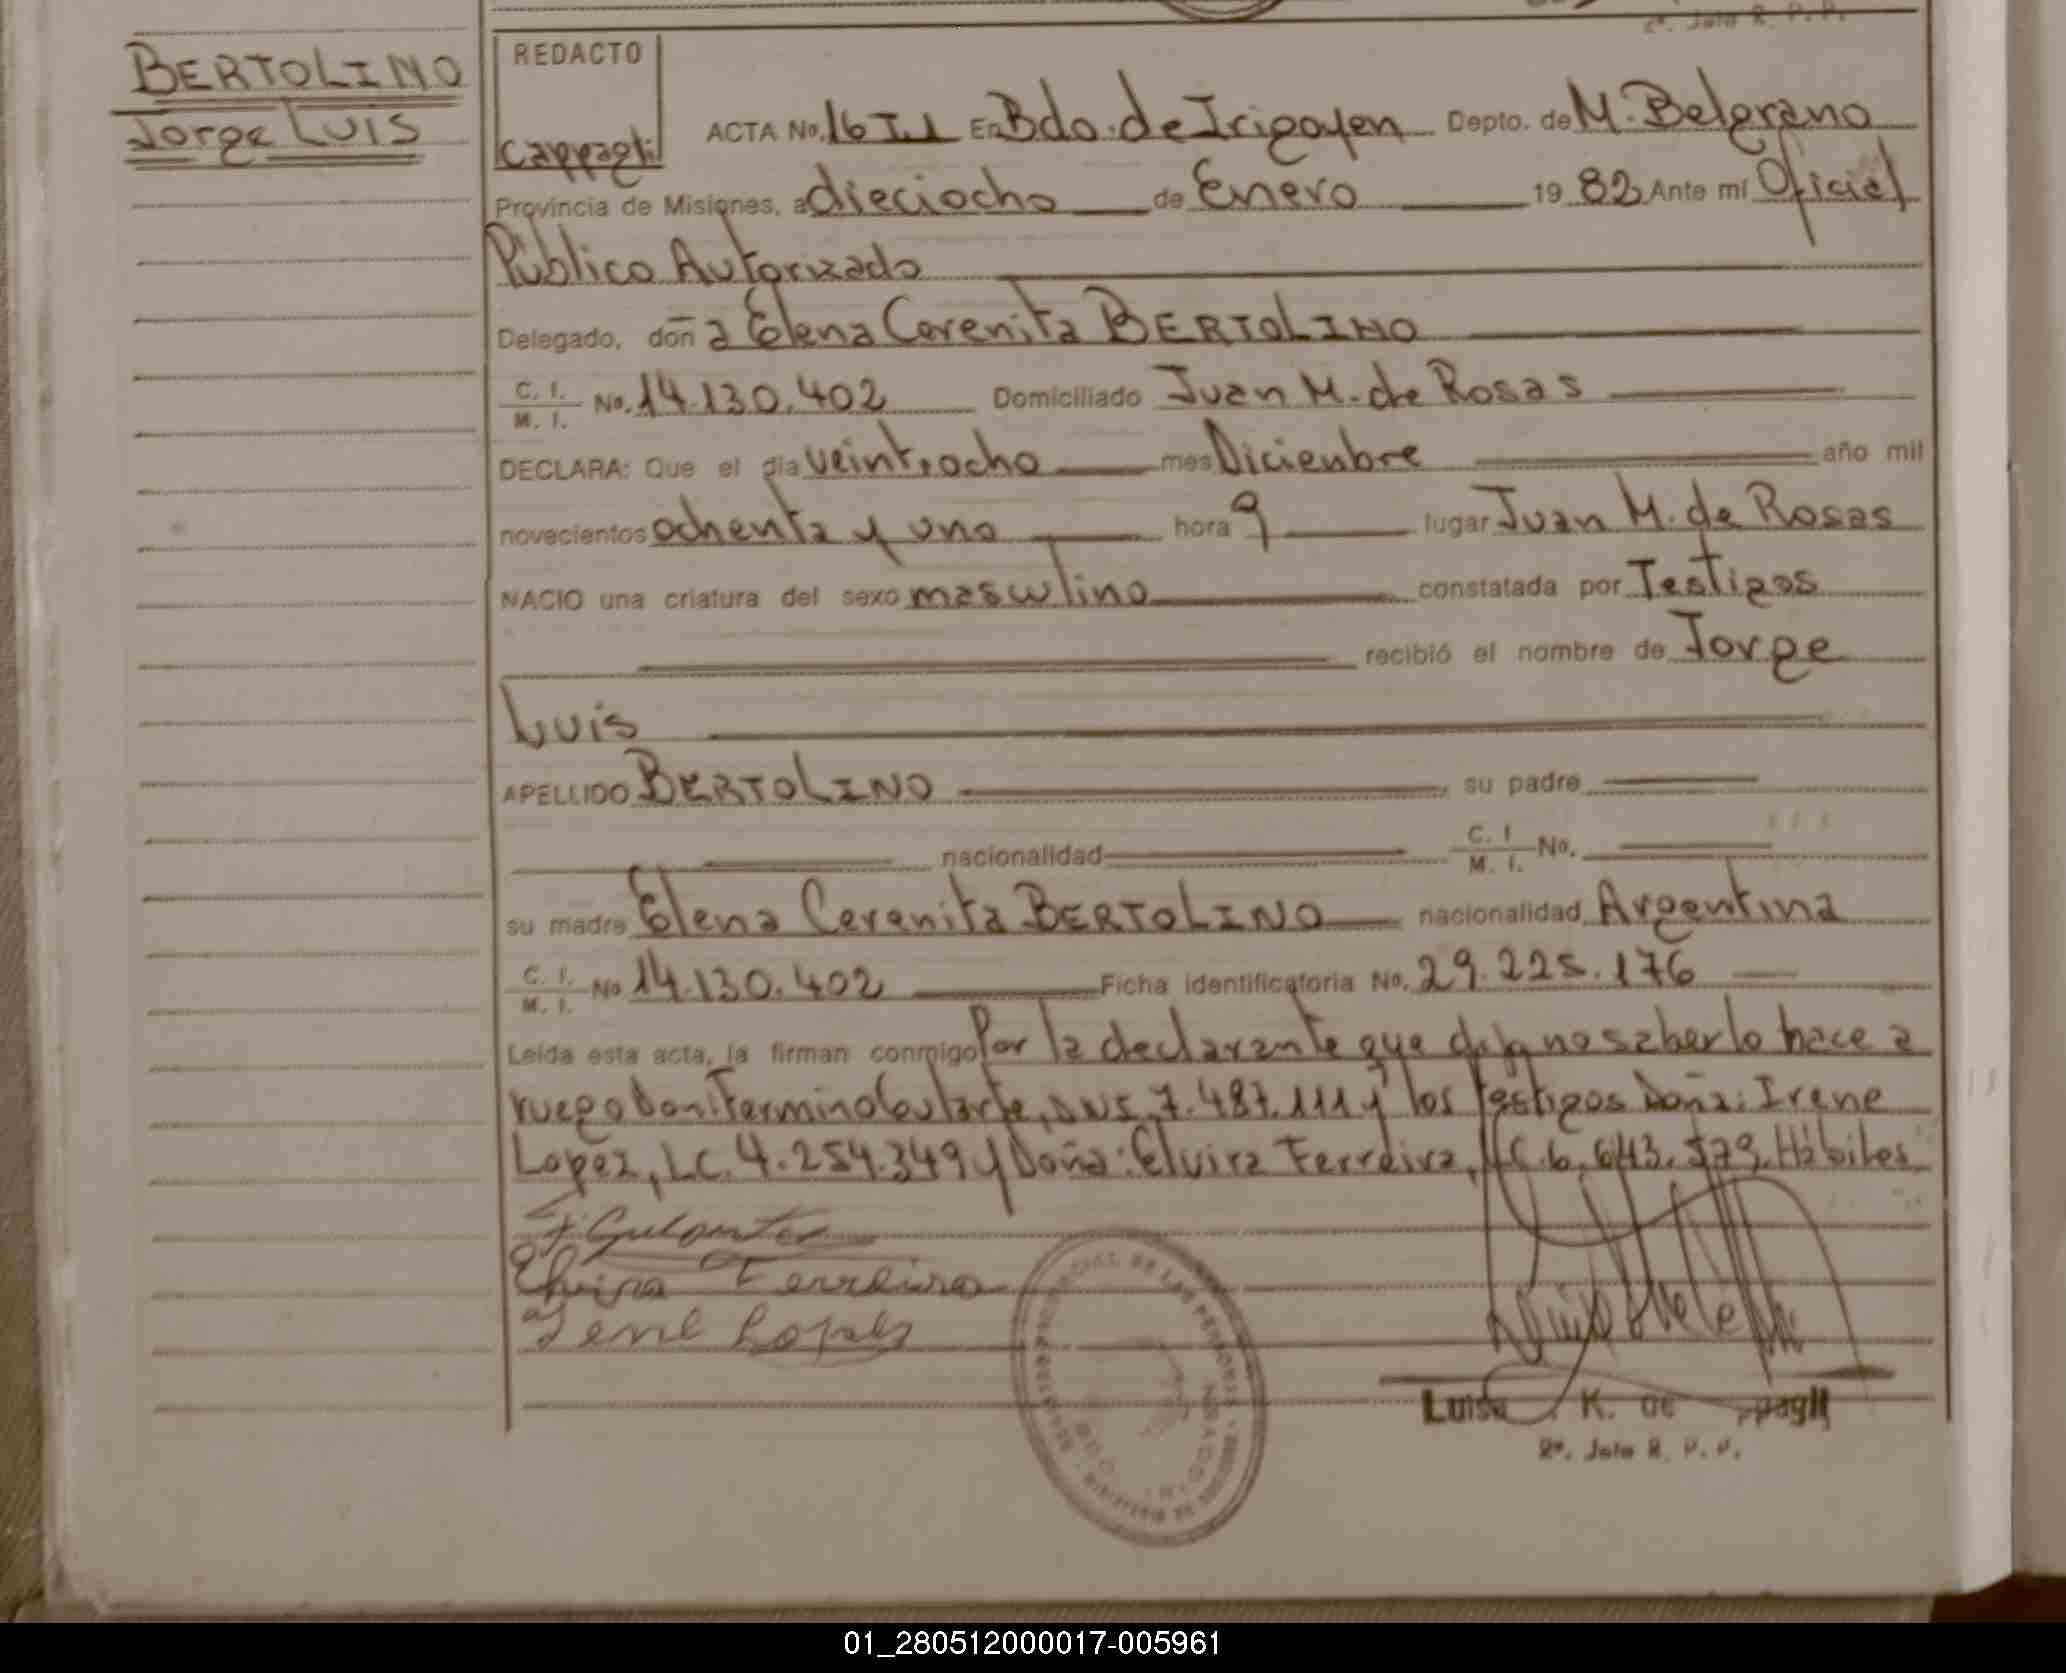 BERTOLINO
Jorge LUIS
REDACTO
Cappagli
ACTA No. 16 T.I En Bdo. de Irigoyen Depto. de M. Belgrano
Provincia de Misiones, a dieciocho de Enero 1982 Ante mí Oficial
Público Autorizado
Delegado, doña Elena Cerenita BERTOLINO
C. I. / M. I. No. 14.130.402 Domiciliado Juan M. de Rosas
DECLARA: Que el día veintiocho mes Diciembre año mil
novecientos ochenta y uno hora 9 lugar Juan M. de Rosas
NACIO una criatura del sexo masculino constatada por Testigos
recibió el nombre de Jorge
Luis
APELLIDO BERTOLINO su padre
nacionalidad C. I / M. I. No.
su madre Elena Cerenita BERTOLINO nacionalidad Argentina
C. I. / M. I. No 14.130.402 Ficha identificatoria No. 29.225.176
Leida esta acta, la firman conmigo Por la declarante que dijo no saberlo hace a
ruego Don: Fermin 7.487.111 y los testigos Doña: Irene
Lopez, LC. 4.254.349 y Doña: Elvira Ferreira, LC. 6.643.579. Hábiles
Elvira Ferreira
Irene Lopez
Luisa K. de
2º. Jefe R. P. P.
01_280512000017-005961